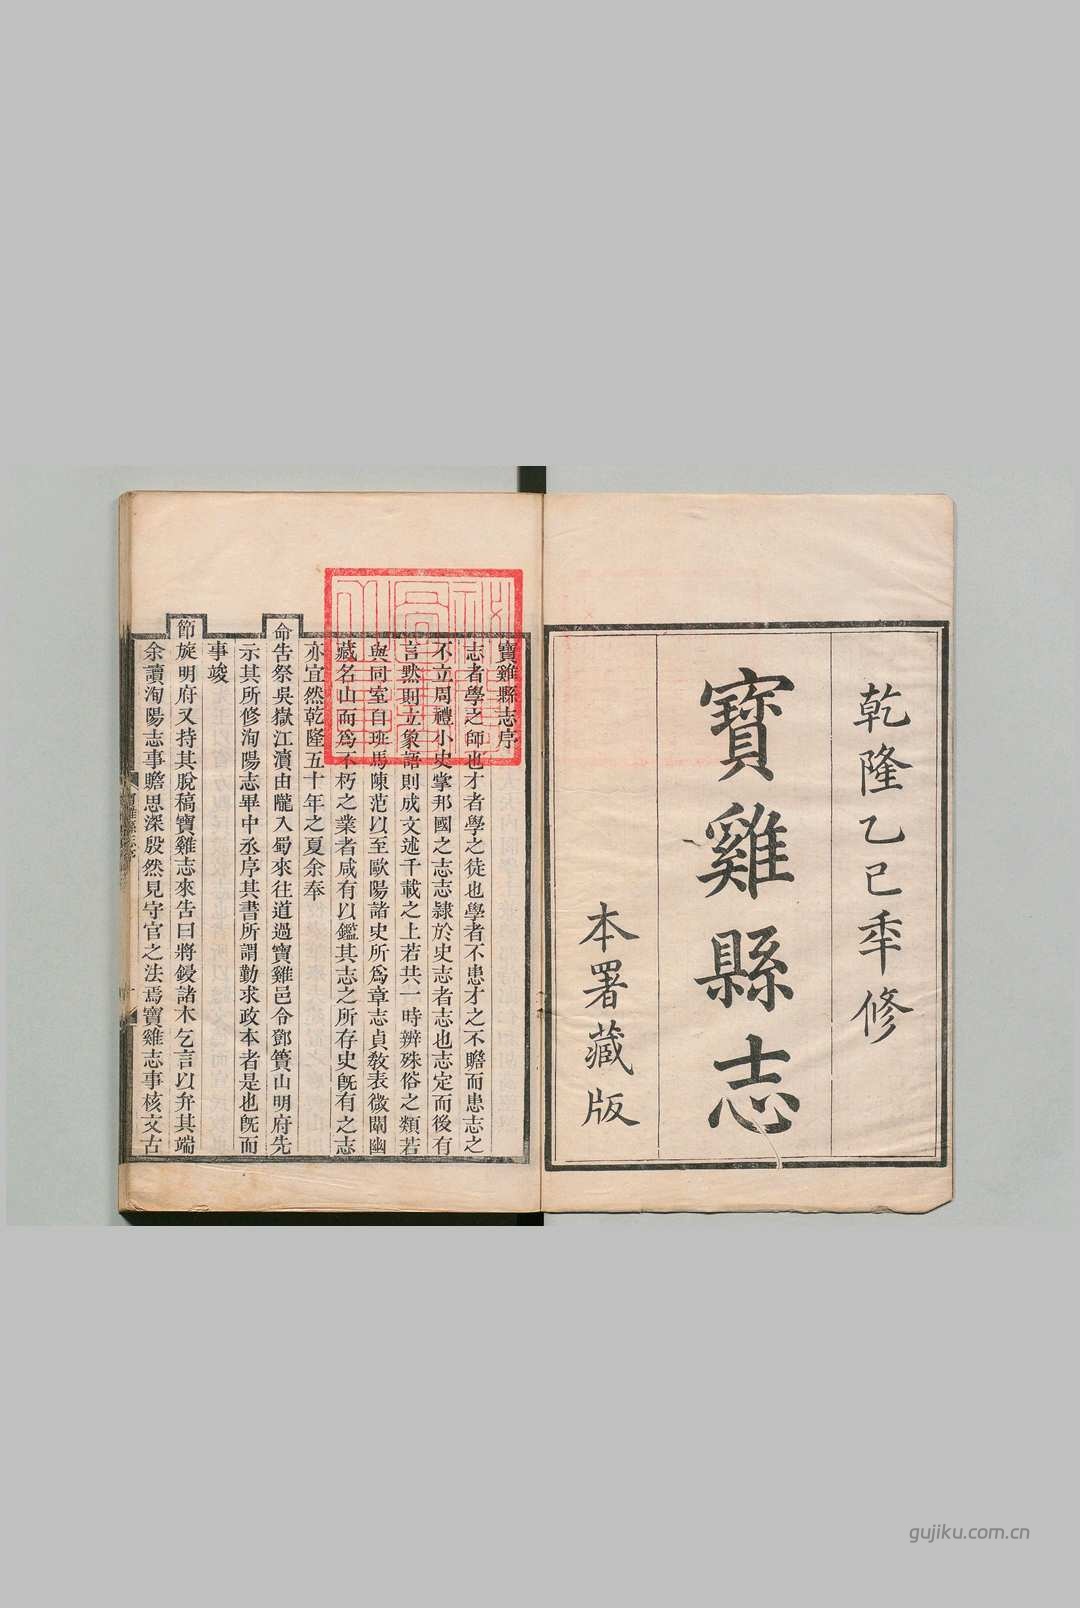 乾隆乙巳年修
寶雞縣志
本署藏版
寶雞縣志序
志者學之師也才者學之徒也學者不患才之不贍而患志之
不立周禮小史掌邦國之志志隷於史志者志也志定而後有
言黙則立象語則成文述千載之上若共一時辨殊俗之類若
與同室自班馬陳范以至歐陽諸史所爲章志貞教表微闡幽
藏名山而爲不朽之業者咸有以鑑其志之所存史旣有之志
亦宜然乾隆五十年之夏余奉
命告祭吳嶽江瀆由隴入蜀來往道過寶雞邑令鄧簣山明府先
示其所修洵陽志畢中丞序其書所謂勤求政本者是也旣而
事竣
節旋明府又持其脫稿寶雞志來告曰將鋟諸木乞言以弁其端
余讀洵陽志事贍思深殷然見守官之法焉寶雞志事核文古
gujiku.com.cn